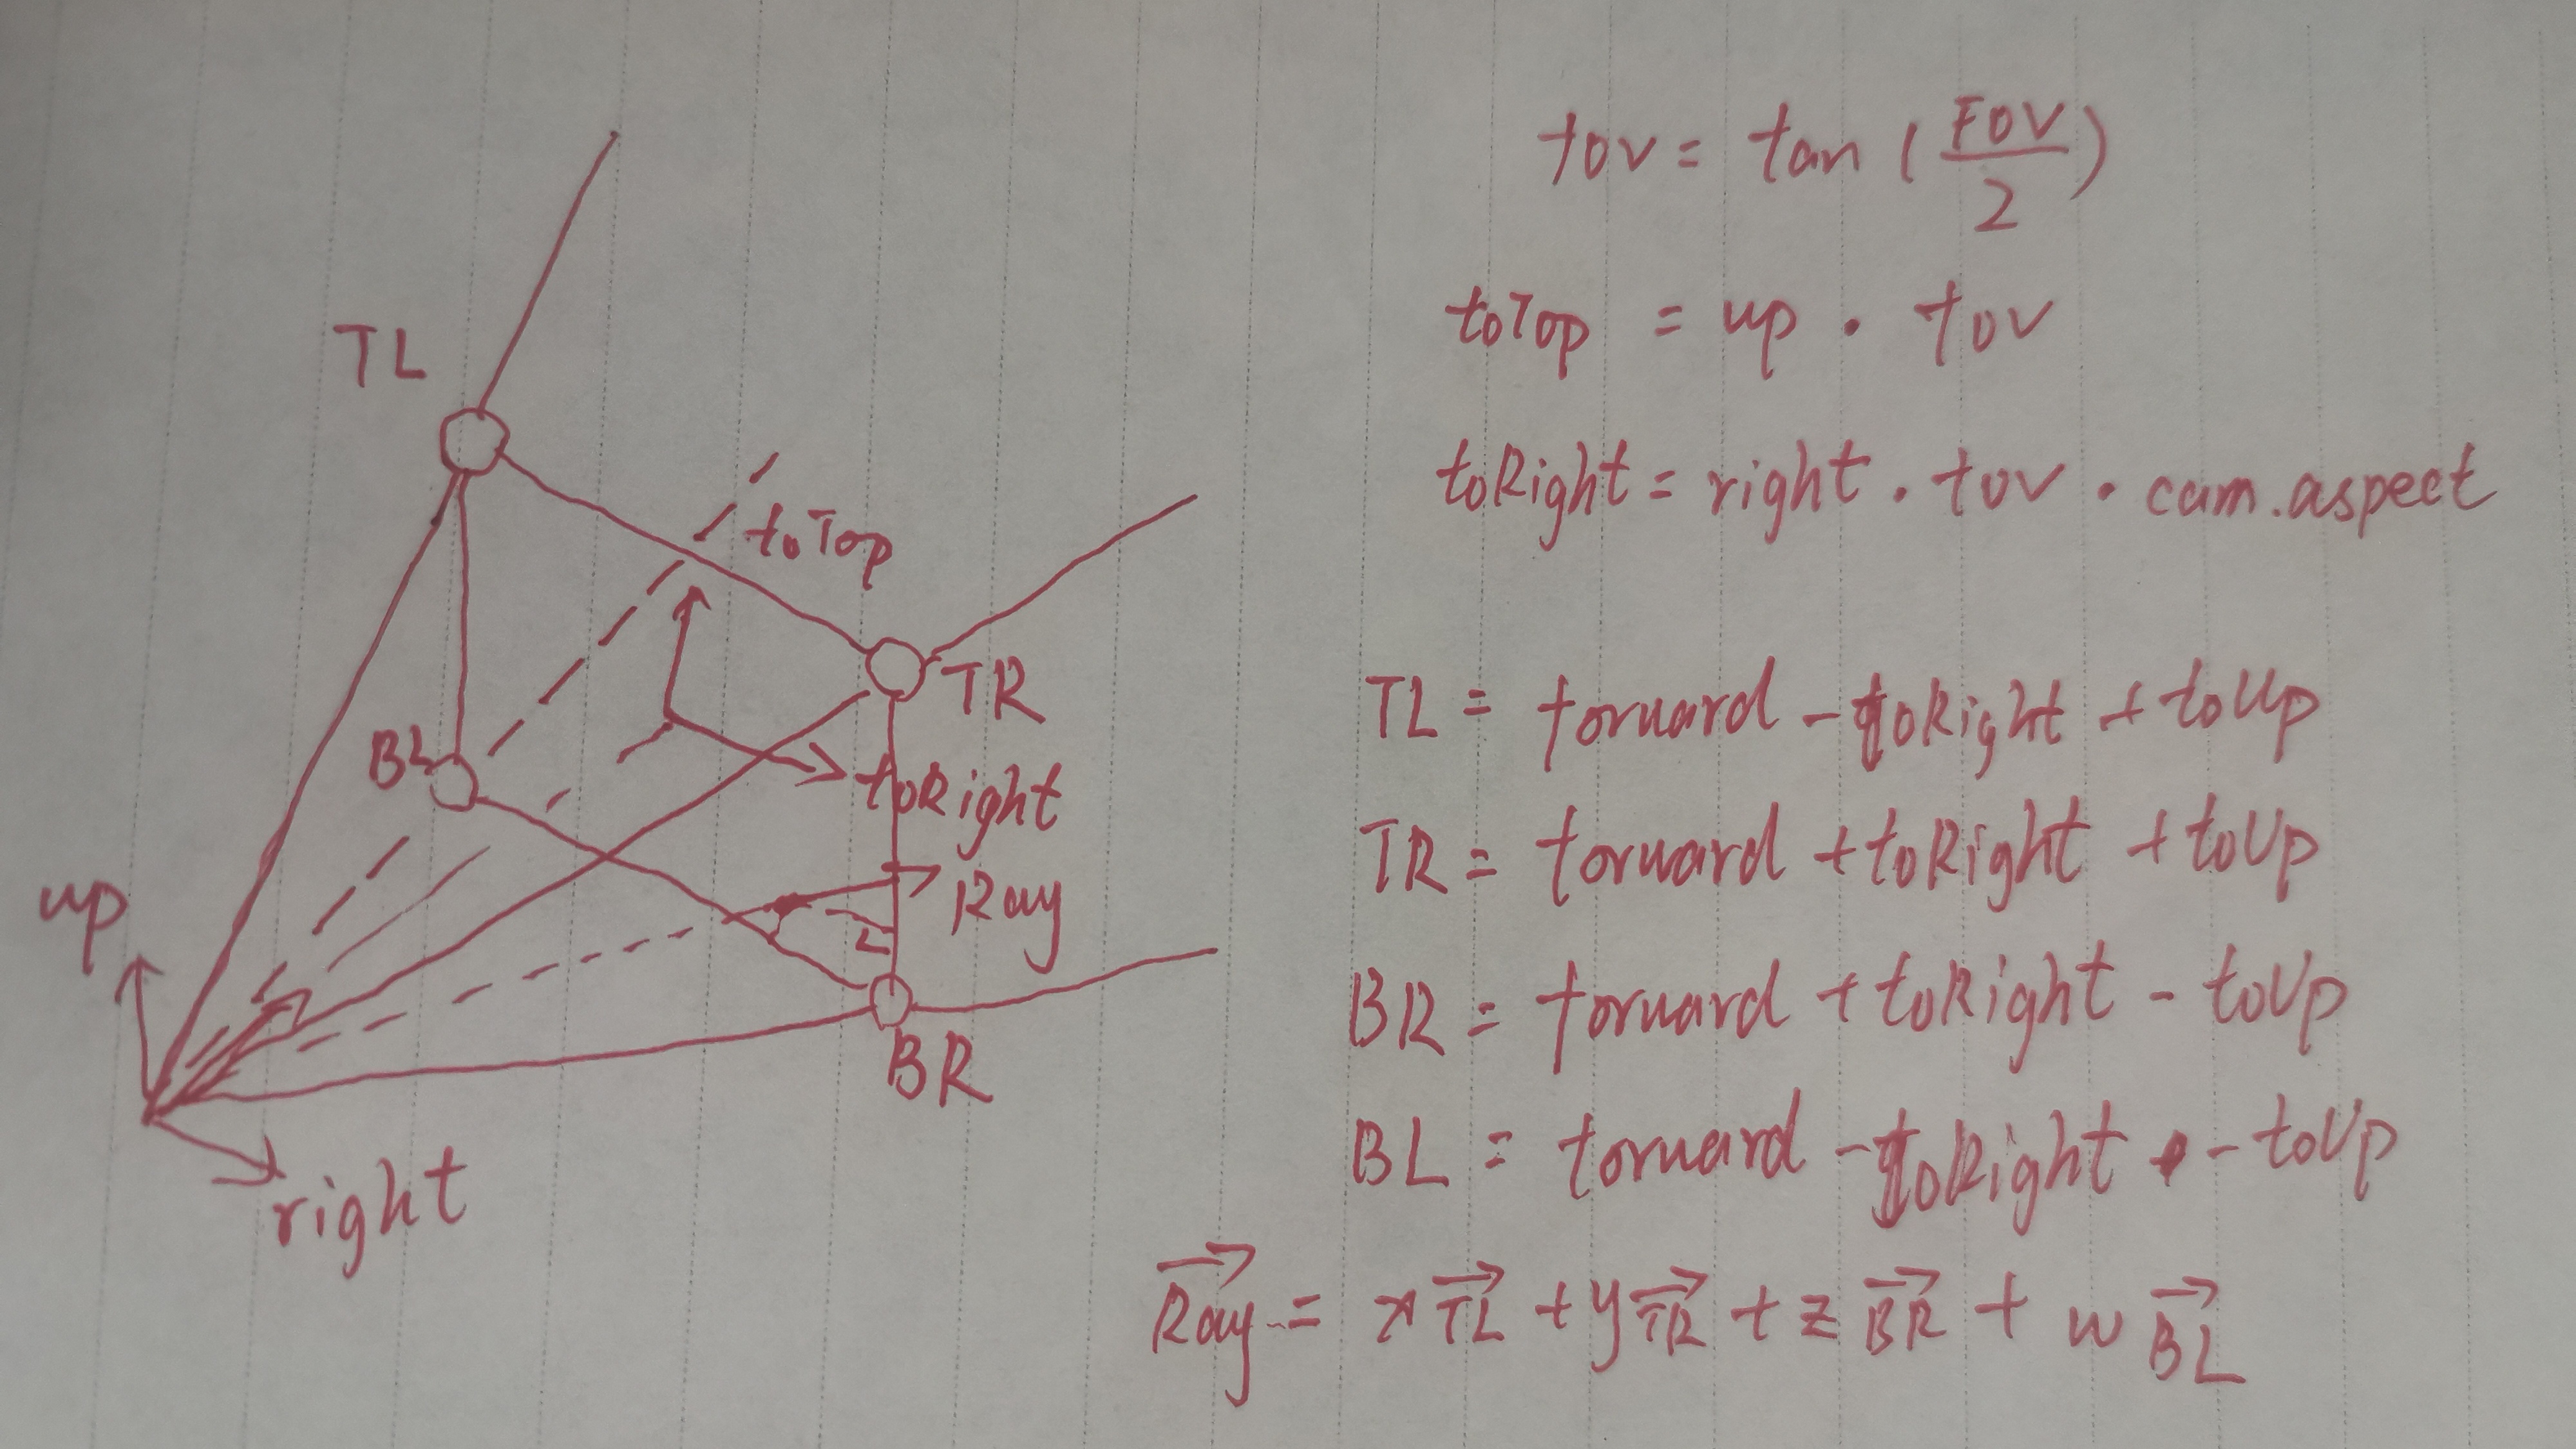 TL
toTop
TR
BL
toRight
up
Ray
BR
right
fov = tan ( FOV / 2 )
toTop = up · fov
toRight = right · fov · cam.aspect
TL = forward - toRight + toUp
TR = forward + toRight + toUp
BR = forward + toRight - toUp
BL = forward - toRight - toUp
Ray = x TL + y TR + z BR + w BL